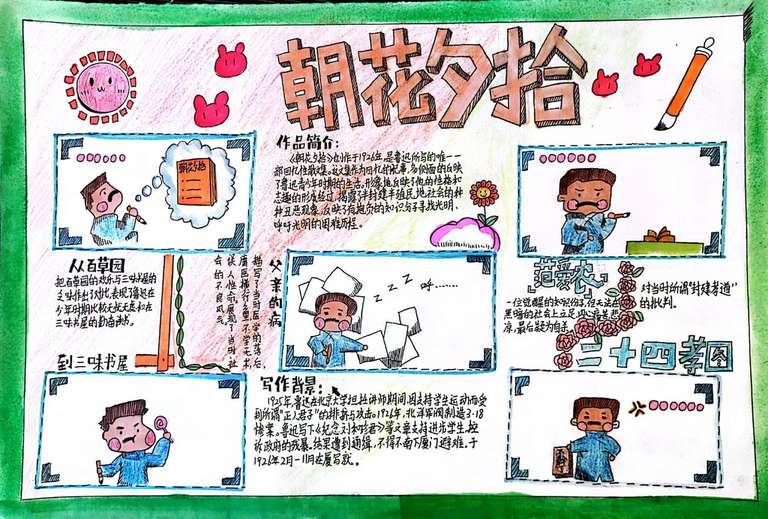 朝花夕拾
作品简介:
《朝花夕拾》创作于1926年,是鲁迅所写的唯一一
部回忆性散文集。这文集作为回忆的叙事,多侧面的反映
了鲁迅青少年时期的生活,形象地反映了他的性格和
志趣的形成经过。揭露了半封建半殖民地社会的种种
丑恶现象,反映了有抱负的知识分子寻找光明、
呼吁光明的困难历程。
朝花夕拾
从百草园
把百草园的欢乐与三味书屋的
乏味作出了对比,表现了鲁迅在
少年时期比较无忧无虑和在
三味书屋的勤奋读书。
到三味书屋
父亲的病
描写了当时医学的落后,
庸医横行与不学无术,
误人性命,展现了当时社
会的不良风气。
z z z 呼......
范爱农
一位觉醒的知识分子,但无法在
黑暗的社会上立足,内心痛苦悲
凉,最后疑为自杀。
对当时所谓"封建孝道"
的批判。
二十四孝图
写作背景:
1925年,鲁迅在北京大学担任讲师期间,因支持学生运动而受
到所谓"正人君子"的排挤与攻击。1926年,北洋军阀制造3·18
惨案。鲁迅写下《纪念刘和珍君》等文章支持进步学生,控
诉政府的残暴。结果遭到通缉,不得不南下厦门避难。于
1926年2月-11月在厦写就。